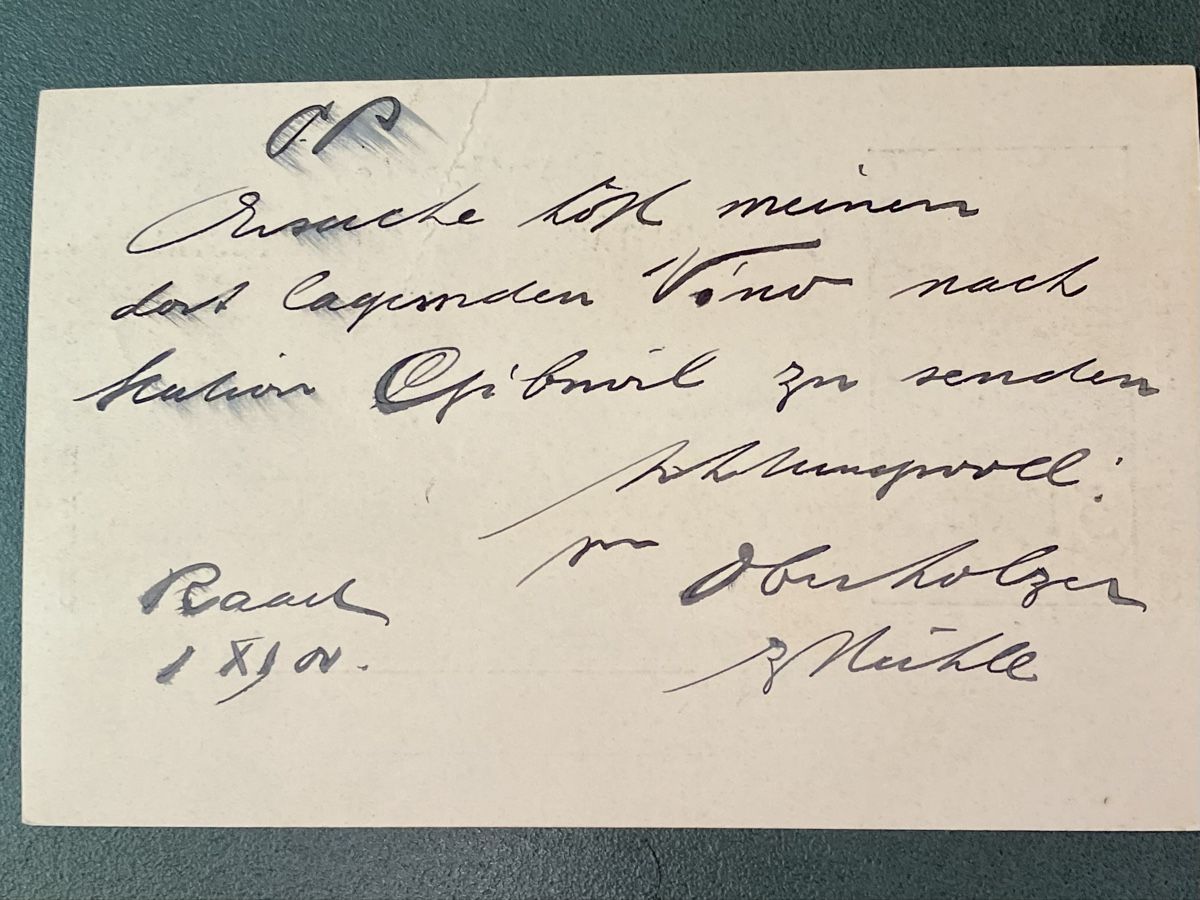 P.P.
Ersuche höfl meinen
dort lagernden Vino nach
Station zu senden
Achtungsvoll:
Oberholzer
z Mühle
Raad
1 XI